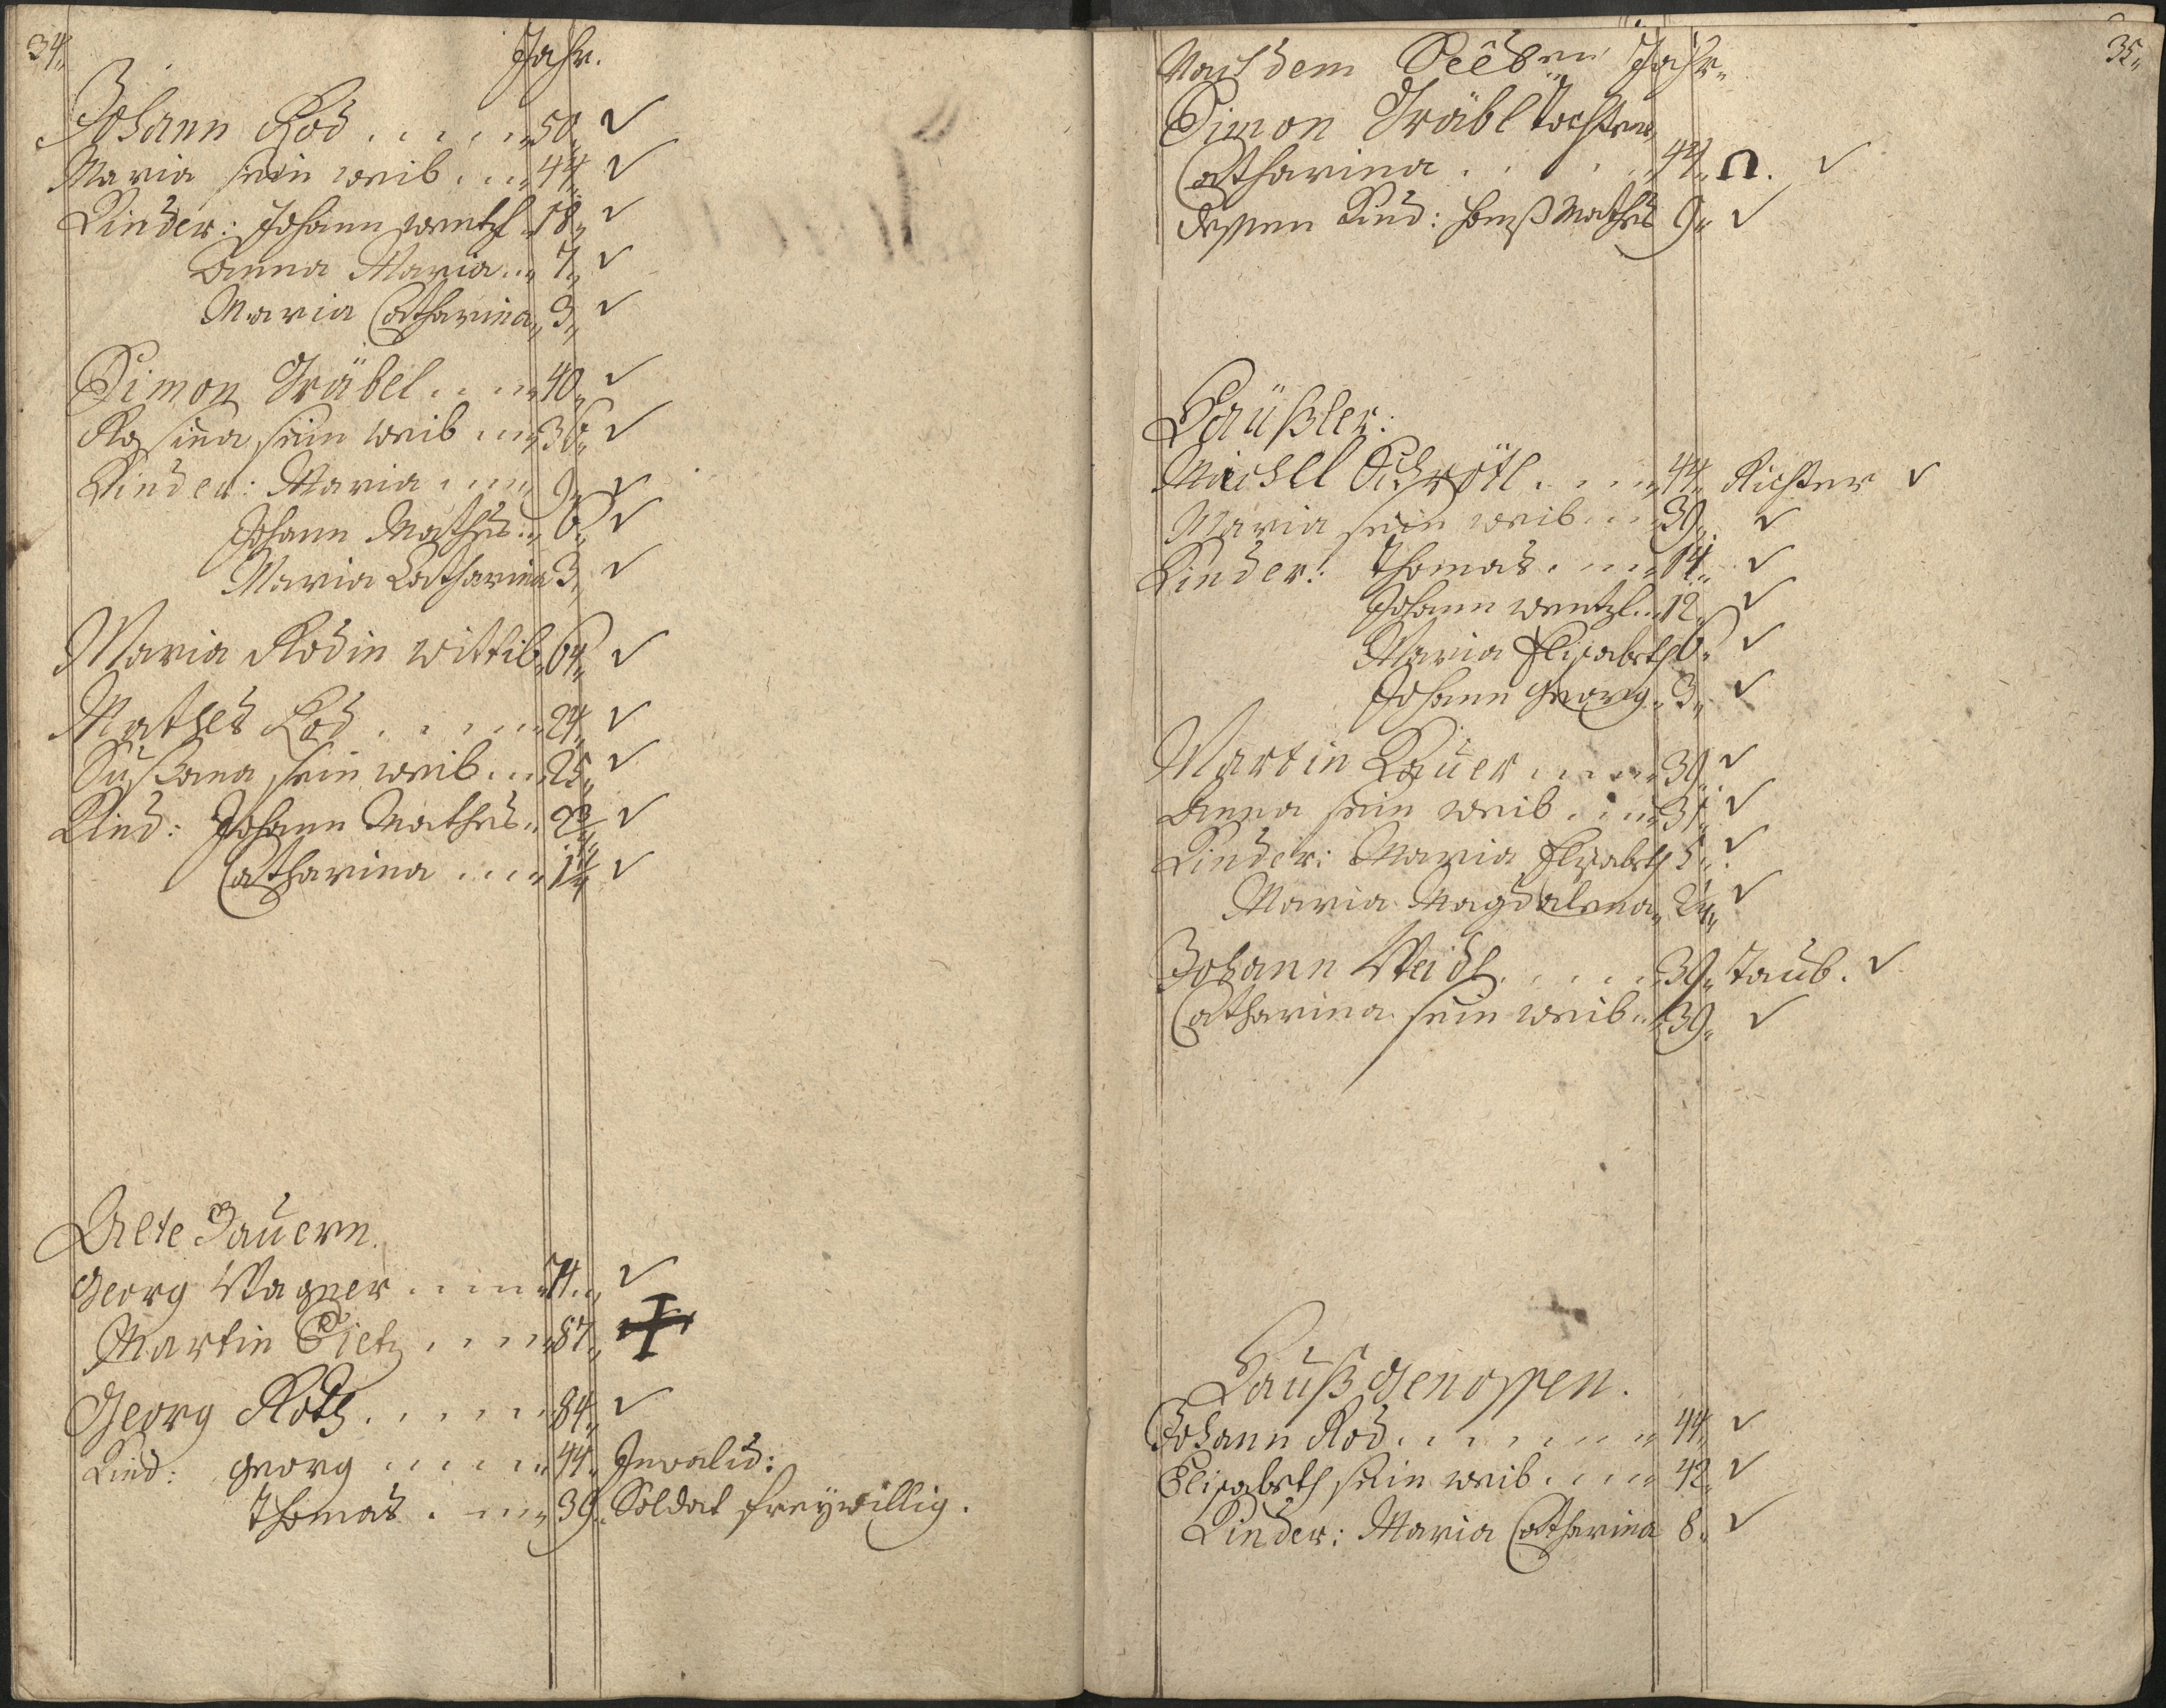 34.
Jahr.
Johann Rod . . . . . 50. ✓
Maria sein weib . . . 44. ✓
Kinder: Johann wentzl 18. ✓
Anna Maria . . 7. ✓
Maria Catharina 3. ✓
Simon Gräbel . . . . 40. ✓
Rosina sein weib . . . 36. ✓
Kinder: Maria . . . . 9. ✓
Johann Mathes . . 6. ✓
Maria Catharina 3. ✓
Maria Rodin wittib 64. ✓
Mathes Rod . . . . . 24. ✓
Sußana sein weib . . . 25. ✓
Kind: Johann Mathes . ✓
Catharina . . . . 1 1/4 ✓
Alte Bauern.
Georg Wagner . . . . 74. ✓
Martin . . . . 87. ✝
Georg . . . . . 84. ✓
Kind: Georg . . . . . 44. Invalid:
Thomas . . . . 39. Soldat freÿwillig.
35.
Nach dem Jahr.
Simon Gräbl Tochter
Catharina . . . . 44. Ω. ✓
dessen Kind: Hanß Mathes 9. ✓
Häußler:
Michel Schrötl . . . . 44. Richter ✓
Maria sein weib . . . 39. ✓
Kinder: Thomas . . . . 14. ✓
Johann wentzl . . 12. ✓
Maria Elisabeth 6. ✓
Johann Georg . 3. ✓
Martin Bauer . . . . . 39. ✓
Anna sein weib . . . . 31. ✓
Kinder: Maria Elisabeth 5. ✓
Maria Magdalena ✓
Johann Weidl . . . . . 39. Taub. ✓
Catharina sein weib . . 39. ✓
Haußgenossen.
Johann Rod . . . . . . . 44. ✓
Elisabeth sein weib . . . . 42. ✓
Kinder: Maria Catharina 8. ✓